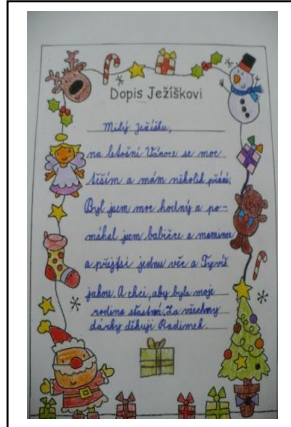 Dopis Ježíškovi
Milý Ježíšku,
na letošní Vánoce se moc
těším a mám několik přání.
Byl jsem moc hodný a po-
máhal jsem babičce a mamince
a přeji si jednu věc a Ty víš
jakou. A chci, aby byla moje
rodina šťastná. Za všechny
dárky děkuji Radimek.